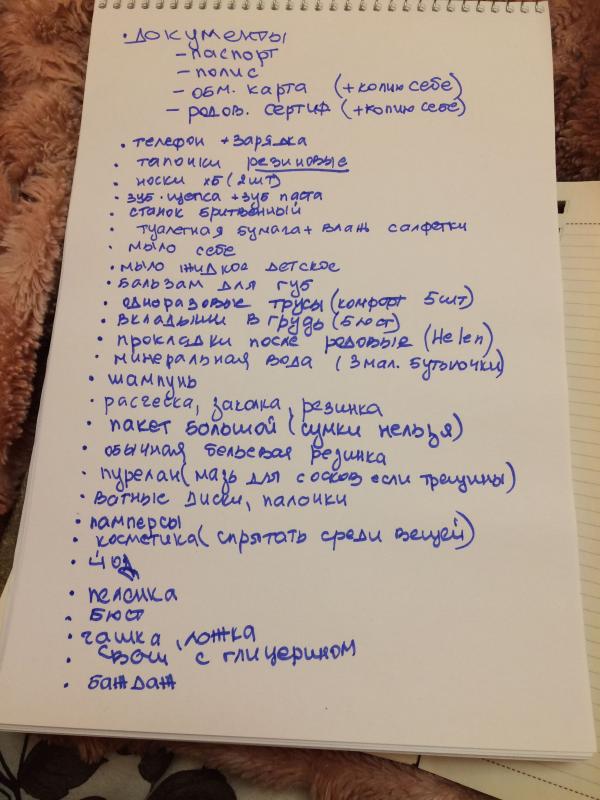 • Документы
– паспорт
– полис
– обм. карта (+копию себе)
– родов. сертиф (+копию себе)
• телефон + зарядка
• тапочки резиновые
• носки хб (2шт)
• зуб. щетка + зуб паста
• станок бритвенный
• туалетная бумага + влаж салфетки
• мыло себе
• мыло жидкое детское
• бальзам для губ
• одноразовые трусы (комфорт 5шт)
• вкладыши в грудь (бюст)
• прокладки после родовые (Helen)
• минеральная вода (3 мал. бутылочки)
• шампунь
• расческа, заколка, резинка
• пакет большой (сумки нельзя)
• обычная бельевая резинка
• пурелан (мазь для сосков если трещины)
• ватные диски, палочки
• памперсы
• косметика (спрятать среди вещей)
• йод
• пелёнка
• бюст
• чашка, ложка
• свечи с глицерином
• бандаж